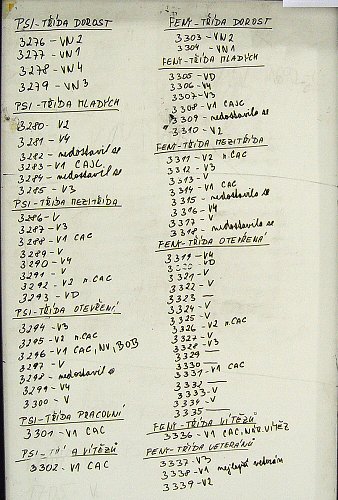 PSI-TŘÍDA DOROST
3276 - VN2
3277 - VN1
3278 - VN4
3279 - VN3
PSI-TŘÍDA MLADÝCH
3280 - V2
3281 - V4
3282 - nedostavil se
3283 - V1 CAJC
3284 - nedostavil se
3285 - V3
PSI-TŘÍDA MEZITŘÍDA
3286 - V
3287 - V3
3288 - V1 CAC
3289 - V
3290 - V4
3291 - V
3292 - V2 n.CAC
3293 - VD
PSI-TŘÍDA OTEVŘENÍ
3294 - V3
3295 - V2 n.CAC
3296 - V1 CAC, NV, BOB
3297 - V
nedostavil se
3299 - V4
3300 - V
PSI-TŘÍDA PRACOVNÍ
3301 - V1 CAC
PSI-TŘ A VÍTĚZŮ
3302 - V1 CAC
FENY-TŘÍDA DOROST
3303 - VN2
3304 - VN1
FENY-TŘÍDA MLADÝCH
3305 - VD
3306 - V4
3307 - V3
3308 - V1 CAJC
3309 - nedostavila se
3310 - V2
FENY-TŘÍDA MEZITŘÍDA
3311 - V2 n.CAC
3312 - V3
3313 - V
3314 - V1 CAC
3315 - nedostavila se
3316 - V4
3317 - V
3318 - nedostavila se
FENY-TŘÍDA OTEVŘENÁ
3319 - V4
VD
3321 - V
3322 - V
3323 —
3324 - V
3325 - V
3326 - V2 n.CAC
3327 - V
3328 - V3
3329 —
3330 —
3331 - V1 CAC
3332 —
3333 - V
3334 - V
3335 —
FENY-TŘÍDA VÍTĚZŮ
3336 - V1 CAC, NÁR. VÍTĚZ
FENY-TŘÍDA VETERÁNŮ
3337 - V3
3338 - V1 nejlepší veterán
3339 - V2